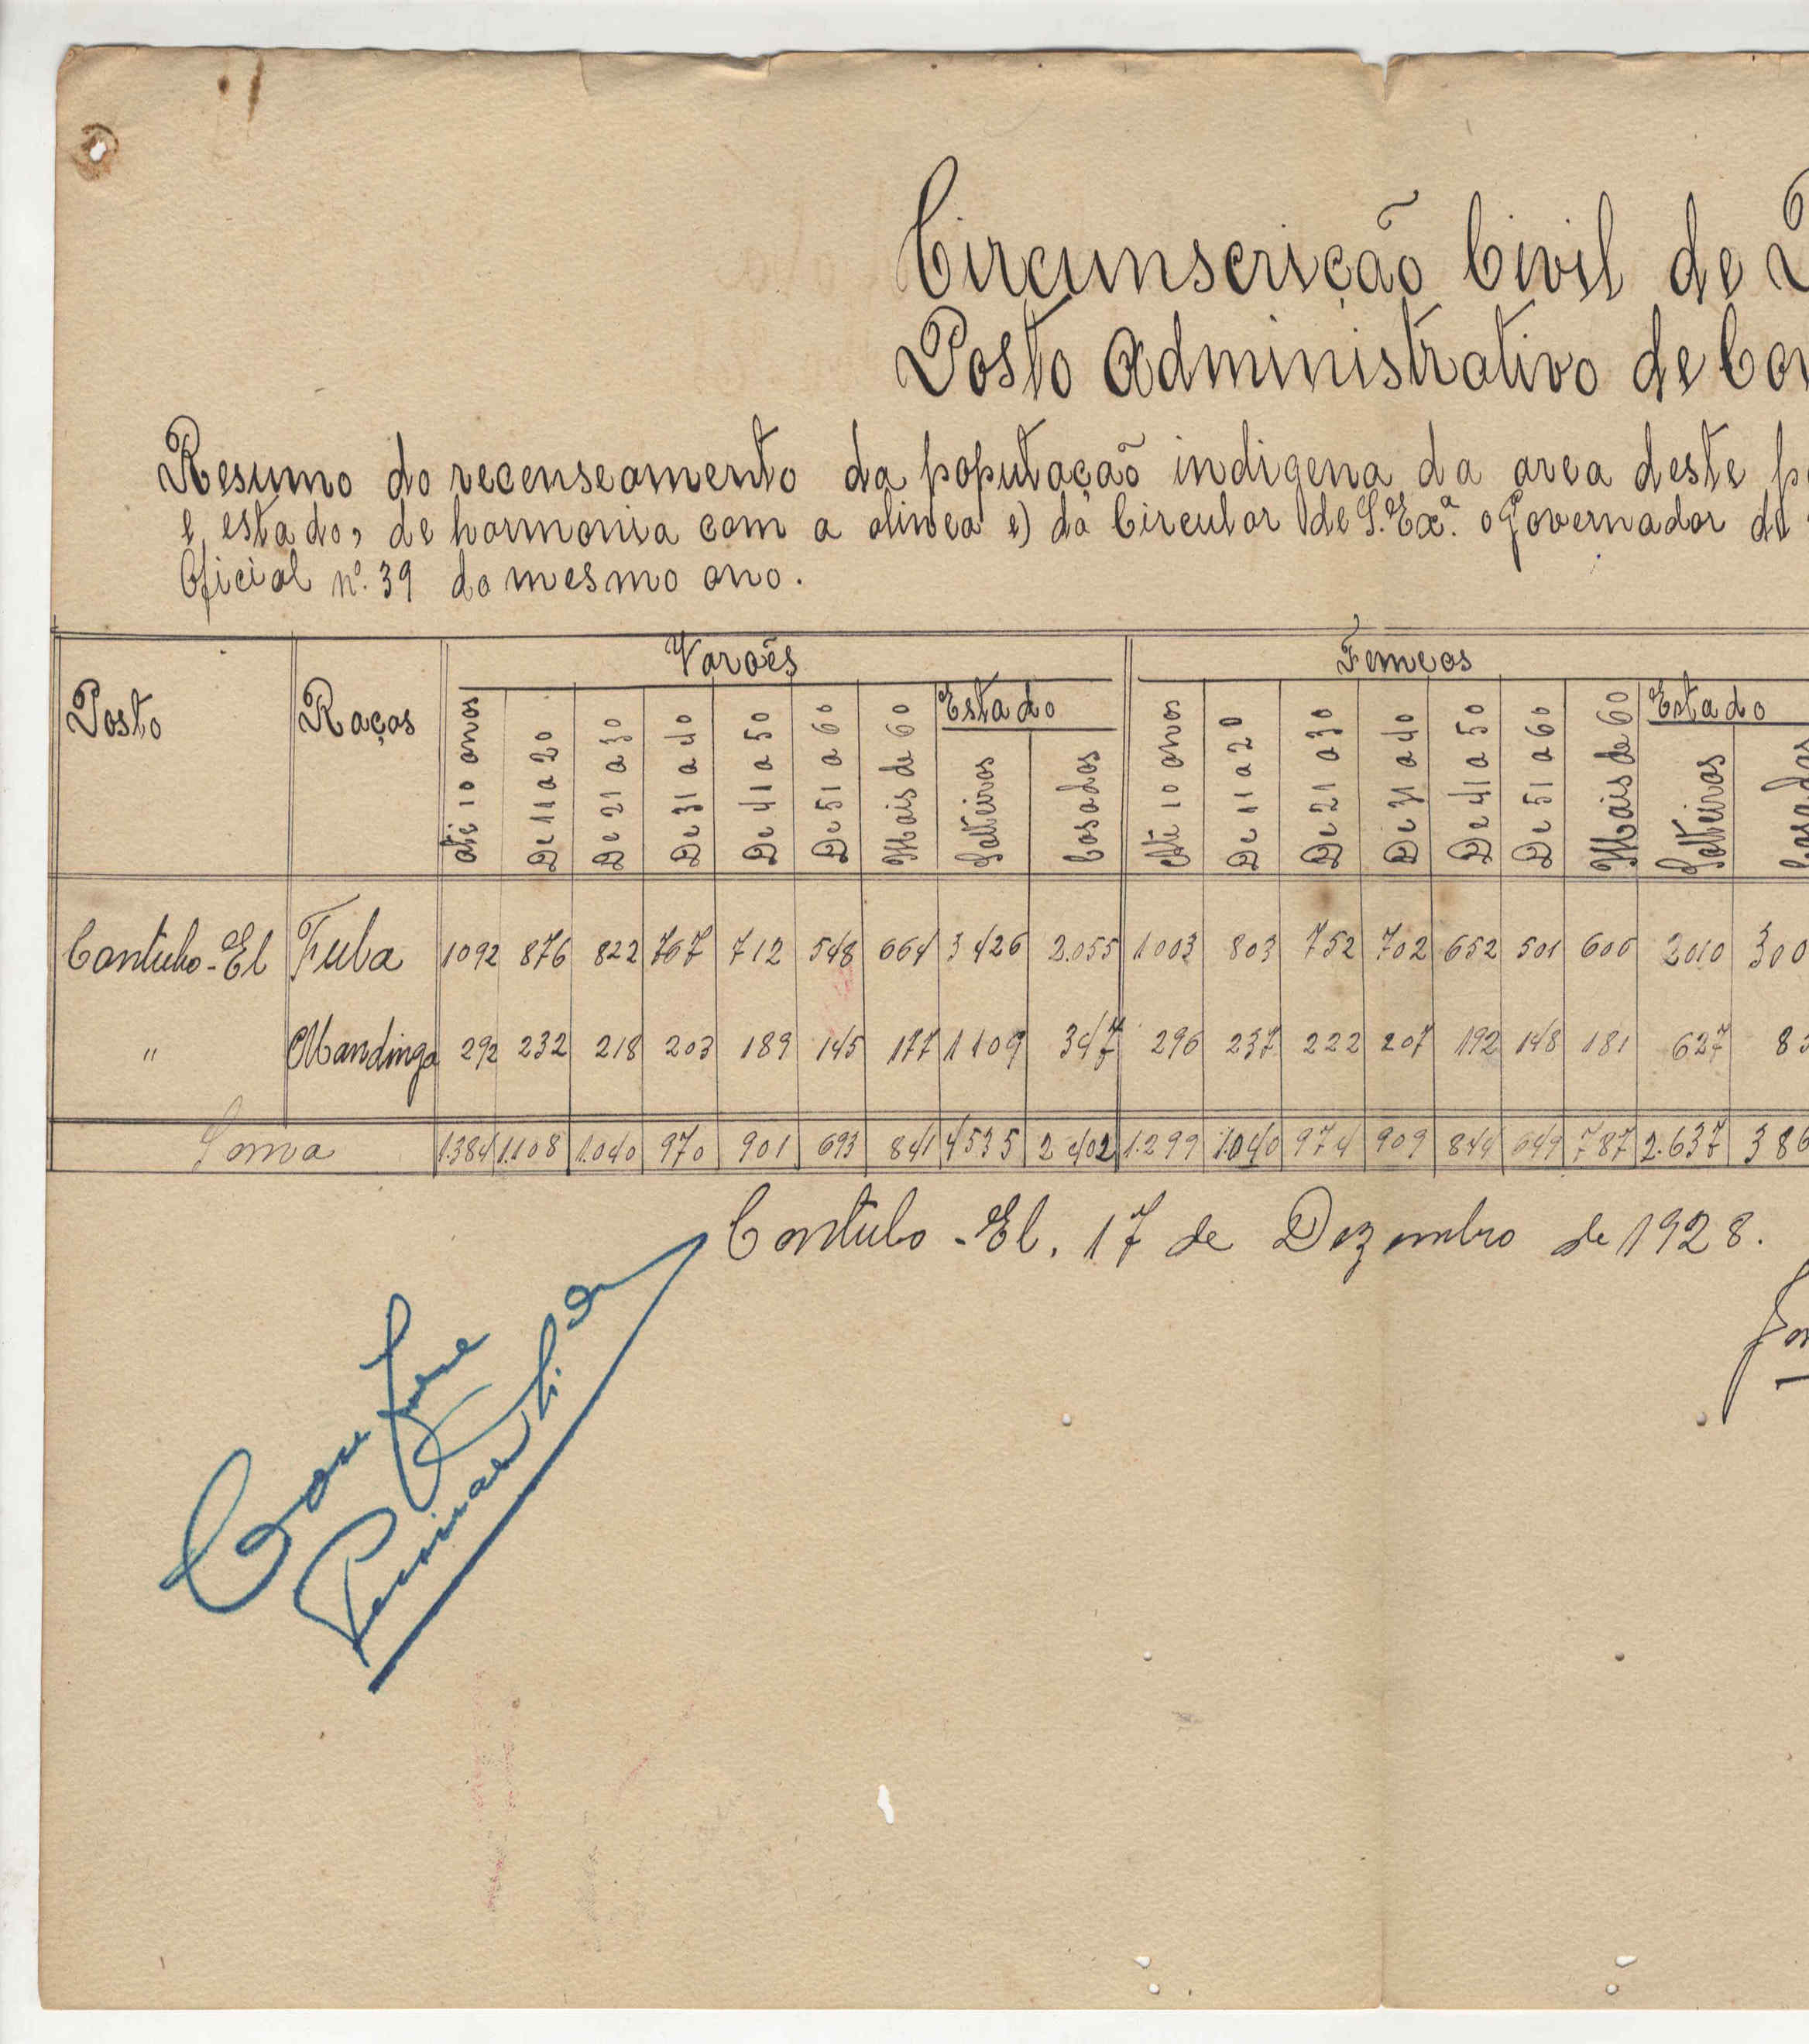 Circunscrição Civil de
Posto Administrativo de Con
Resumo do recenseamento da população indigena da area deste p
e estado, de harmonia com a alinea e) da Circular de S. Exª. o Governador de
Oficial nº. 39 do mesmo ano.
Varoẽs Femeas
Posto Raças Até 10 anos De 11 a 20 De 21 a 30 De 31 a 40 De 41 a 50 De 51 a 60 Mais de 60 Estado Até 10 anos De 11 a 20 De 21 a 30 De 31 a 40 De 41 a 50 De 51 a 60 Mais de 60 Estado
Solteiros Casados Solteiras Casadas
Contubo-El Fula 1092 876 822 767 712 548 664 3426 2.055 1003 803 752 702 652 501 606 2010 300
" Mandinga 292 232 218 203 189 145 177 1109 347 296 237 222 207 192 148 181 627 8
Soma 1.384 1.108 1.040 970 901 693 841 4535 2402 1.299 1.040 974 909 844 649 787 2.637 386
Contubo-El, 17 de Dezembro de 1928.